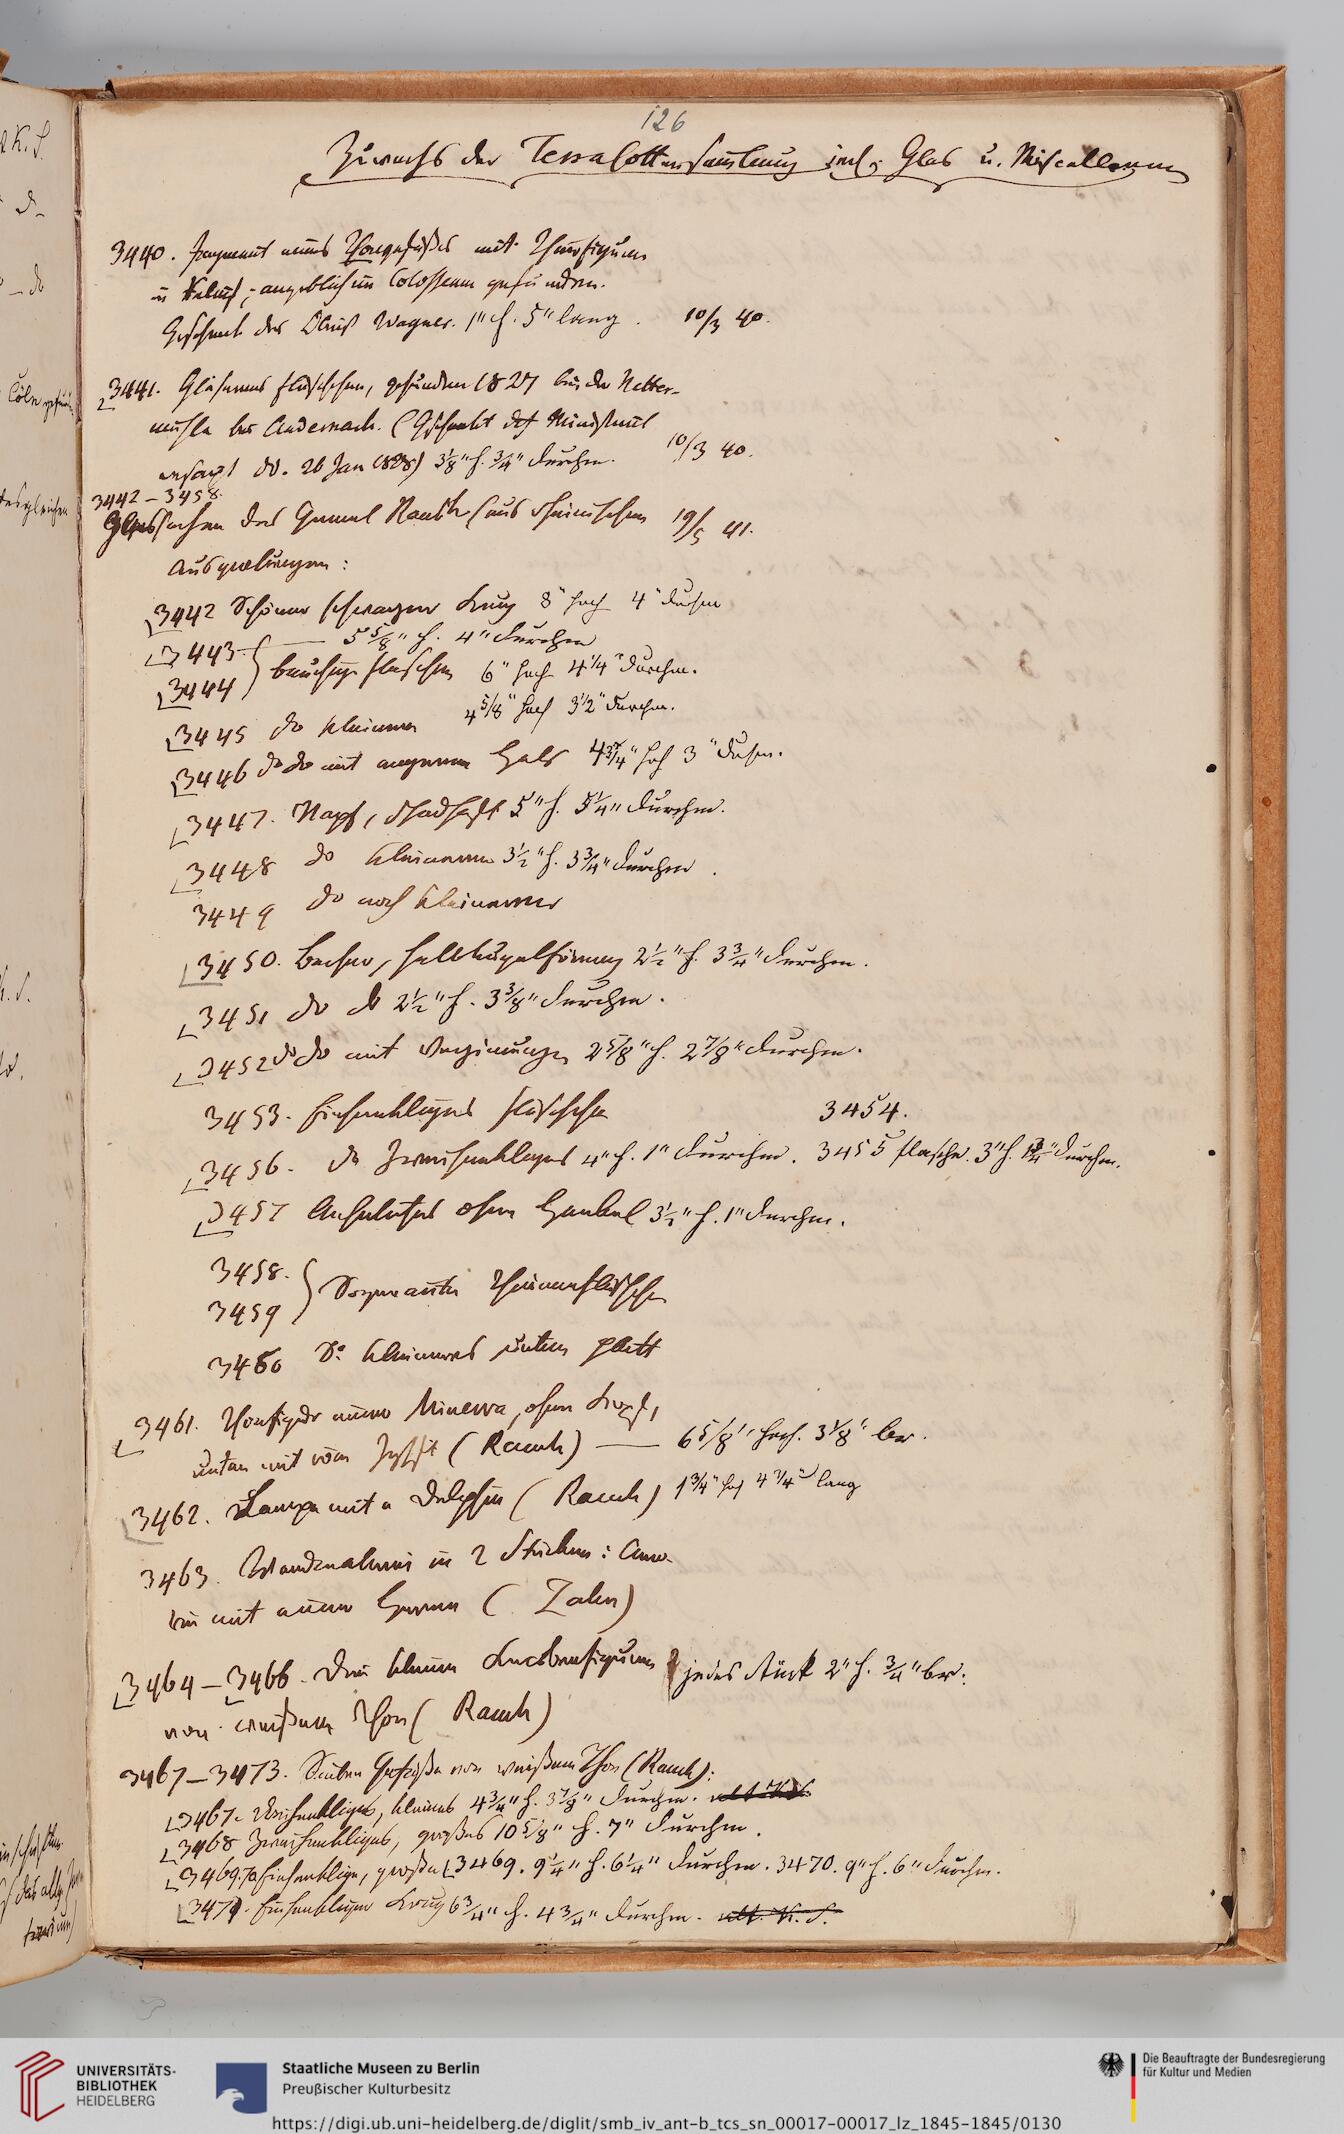 126
Zuwachs der Terracottensammlung incl. Glas u. Miscellaneen
3440. Fragment eines Thongefäßes mit Thierfiguren
in Relief, angeblich im Colosseum gefunden.
Geschenk des Wagner. 1" h. 5" lang. 10/3 40.
3441. Gläsernes Fläschchen, gefunden 1827 bei der Netter-
mühle bei Andernach. (Geschenkt
d. d. 26 Jan 1828) 3 1/8" h. 3/4" durchm. 10/3 40.
3442–3458.
Glassachen des General Rauch (aus rheinischen 19/5 41.
Ausgrabungen:
3442 Schöner schwarzer Krug 8" hoch 4" durchm
3443 — 5 5/8" h. 4" durchm
3444 bauchige Flaschen 6" hoch 4 1/4" durchm.
3445 do kleinere 4 5/8" hoch 3 1/2" durchm.
3446 do do mit engerem Hals 4 3/4" hoch 3" durchm.
3447. Napf, schadhaft 5" h. 5 1/4" durchm.
3448 do kleinerer 3 1/2" h. 3 3/4" durchm.
3449 do noch kleinerer
3450. Becher, halbkugelförmig 2 1/2" h. 3 3/4" durchm.
3451 do do 2 1/2" h. 3 3/8" durchm.
3452 do do mit Verzierungen 2 5/8" h. 2 7/8" durchm.
3453. Einhenkliges Fläschchen 3454.
3456. do Zweihenkliges 4" h. 1" durchm. 3455 Flasche. 3" h. durchm.
3457 Aehnliches ohne Henkel 3 1/2" h. 1" durchm.
3458.
3459 Sogenannte Thränenfläschchen
3460 do kleineres unten platt
3461. Thonfigur einer Minerva, ohne Kopf,
unten mit röm Inschft (Rauch) — 6 5/8" hoch. 3 1/8" br.
3462. Lampe mit e Delphin (Rauch) 1 3/4" hoch 4 1/4" lang
3463. Wandmalerei in 2 Stücken: Amo-
rin mit einer Herme (Zahn)
3464–3466. Drei kleine Knabenfiguren jedes Stück 2" h. 3/4" br.
von weißem Thon (Rauch)
3467–3473. Sieben Gefäße von weißem Thon (Rauch):
3467. Zweihenkliges, kleines 4 3/4" h. 3 7/8" durchm.
3468 Zweihenkliges, großes 10 5/8" h. 7" durchm.
3469.70 Einhenklige, große 3469. 9 1/4" h. 6 1/4" durchm. 3470. 9" h. 6" durchm.
3471. Einhenkliger Krug 6 3/4" h. 4 3/4" durchm.
UNIVERSITÄTS-
BIBLIOTHEK
HEIDELBERG
Staatliche Museen zu Berlin
Preußischer Kulturbesitz
Die Beauftragte der Bundesregierung
für Kultur und Medien
https://digi.ub.uni-heidelberg.de/diglit/smb_iv_ant-b_tcs_sn_00017-00017_lz_1845-1845/0130